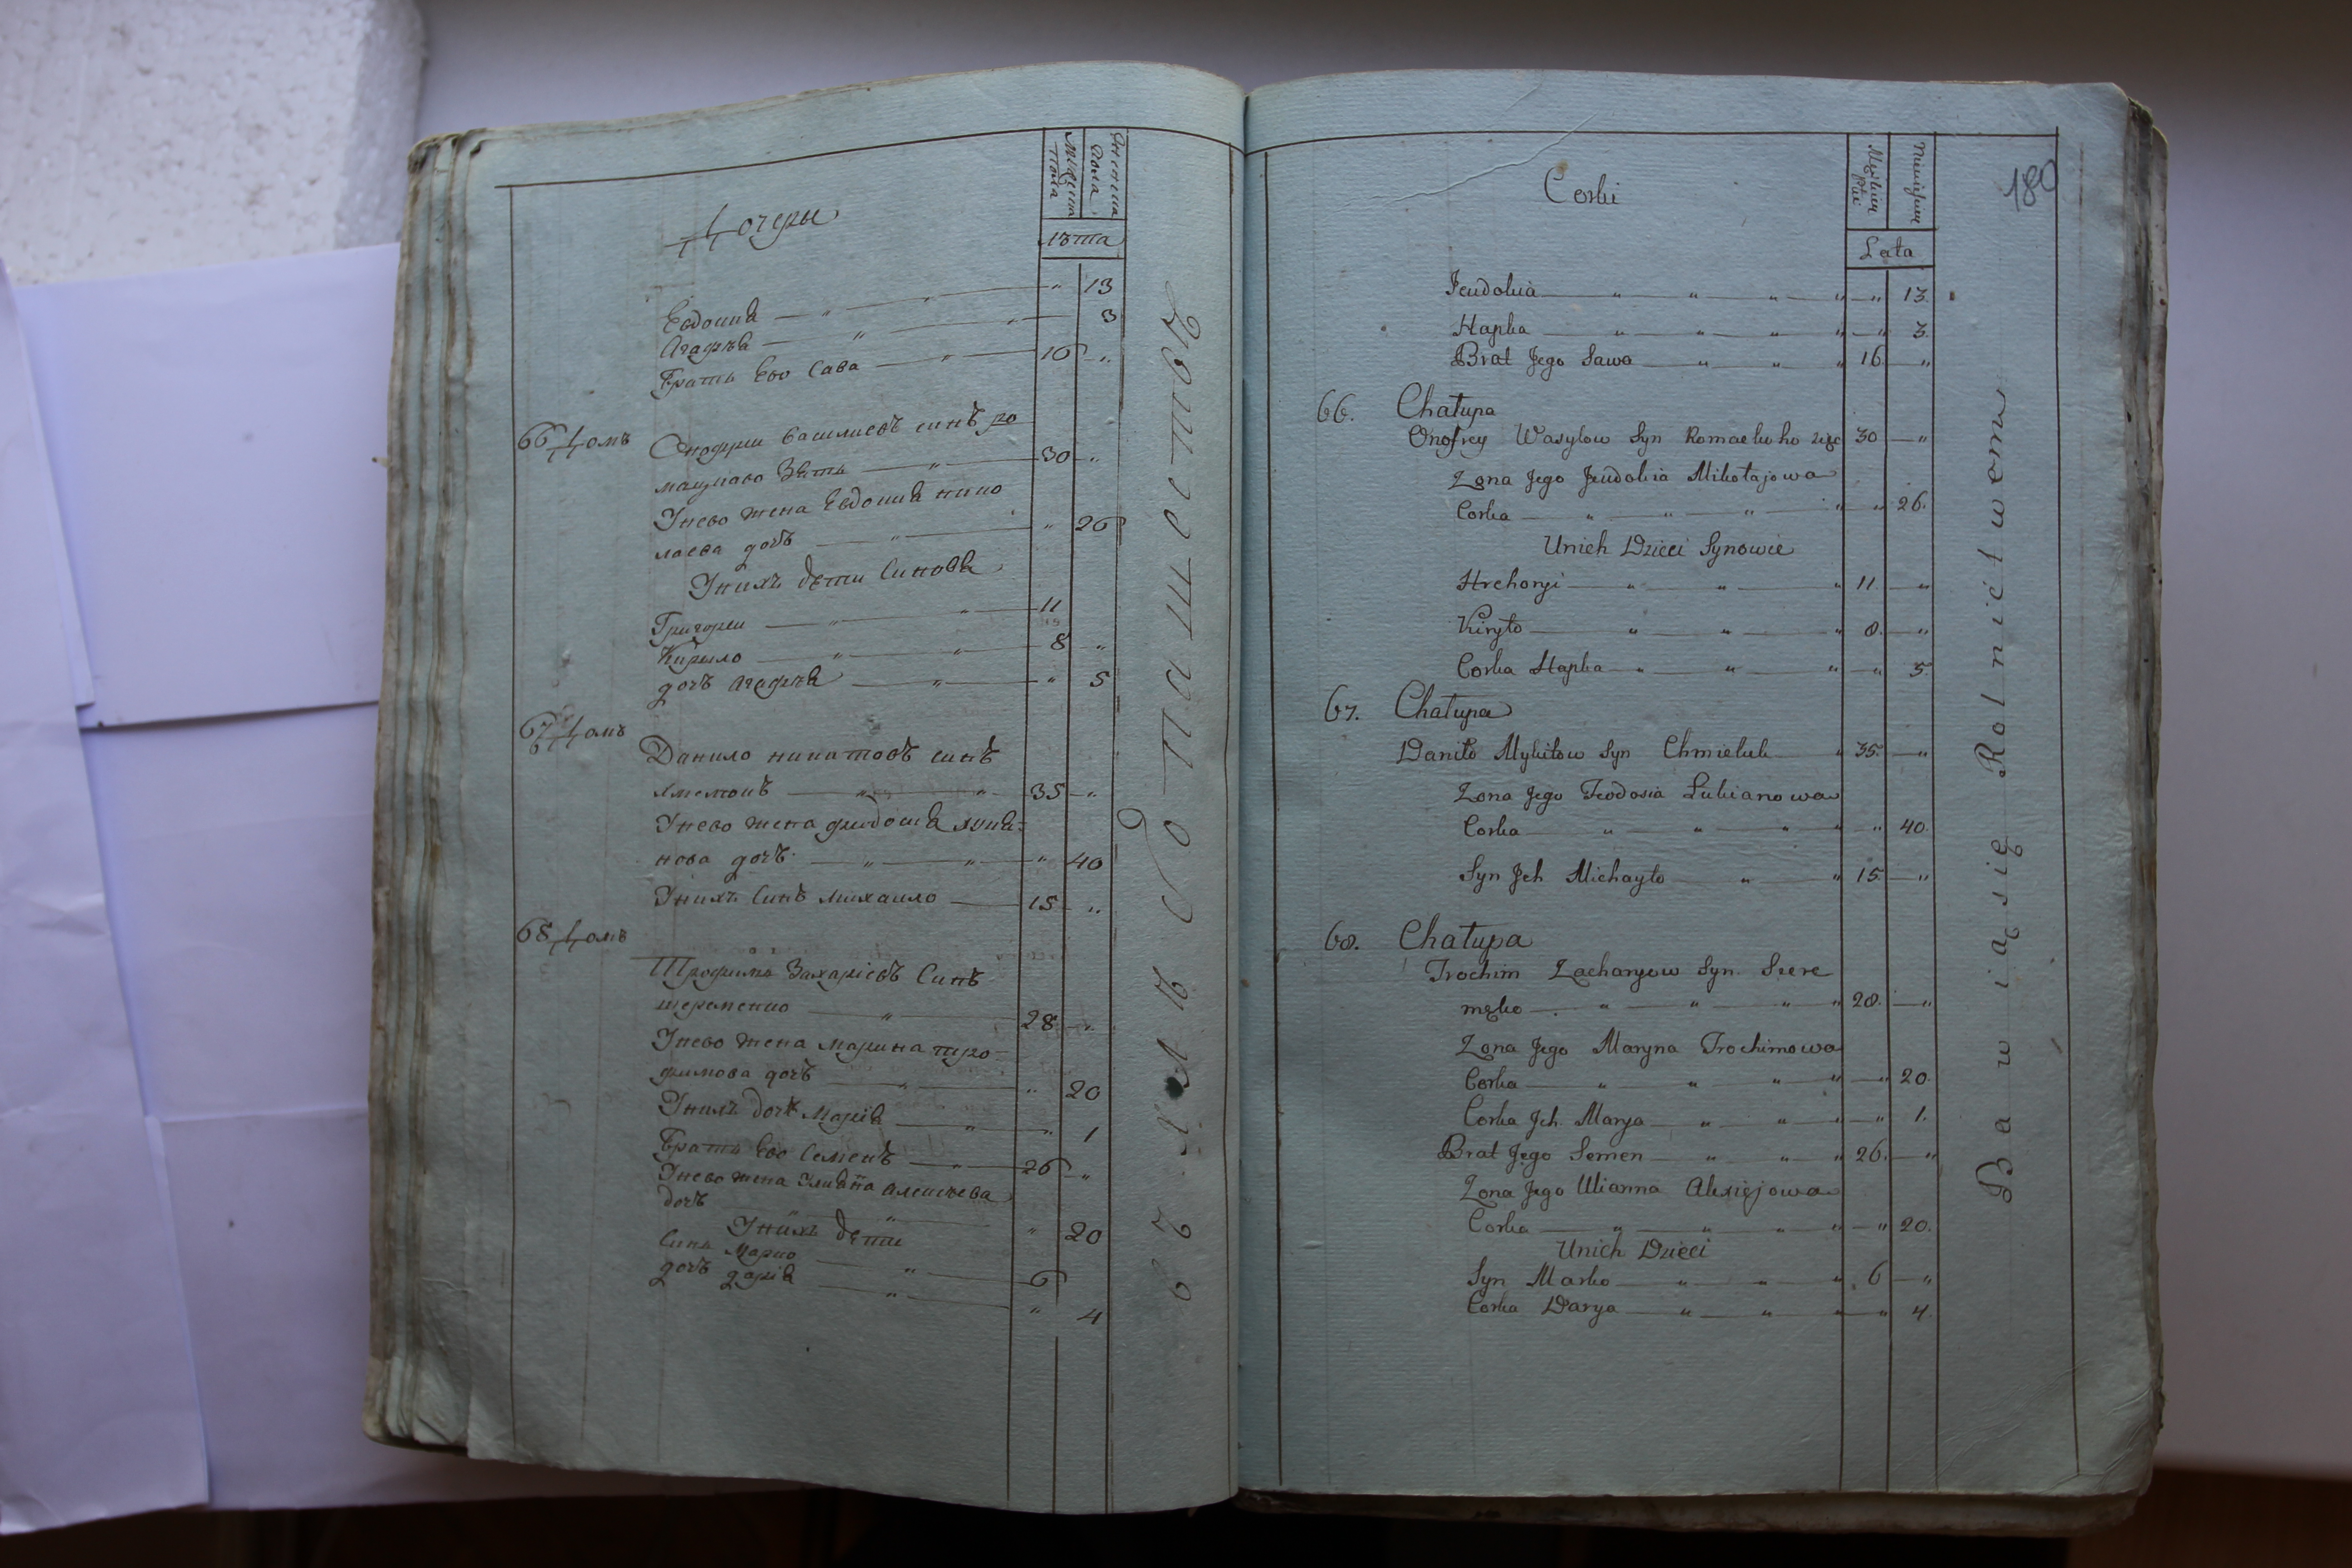 Дочеры
мущин
пола
женска
пола
лѣта
Евдокиѣ — " — " — " 13
Агафиѣ — " — " — 3
Братъ Ево Сава — " — 16 — "
66 Домъ
Онофрии Василиевъ синъ ро
мацкаво Зять — " — 30 — "
Унево жена Евдокиѣ нико
лаева дочъ — " — " 26
Унихъ дѣти Синовѣ
Григореи — " — " — 11
Кирыло — " — " — 8 "
дочъ Агафиѣ — " — " 5
67 Домъ
Данило никитовъ синъ
хмелюкъ — " — " — 35 — "
Унево жена феодосиѣ лукѣ-
нова дочъ — " — " — " 40
Унихъ Синъ михаило — 15 — "
68 Домъ
Трофимъ Захариевъ Синъ
шеременко — " — 28 — "
Унево жена марина тро-
фимова дочъ — " — " 20
Унихъ дочъ Мариѣ — " — " 1
Братъ Ево Семенъ — " — 26 — "
Унево жена Улиѣна алексѣева
дочъ — " — " 20
Унихъ дѣти
Синъ Марко — " — 6
дочъ дариѣ — " — " 4
въ хлѣбопашествѣ
180
Corki
Męzkiey
Płci
Niewieśćiey
Lata
Jeudokia — " — " — " — " — " 13.
Hapka — " — " — " — " — " 3.
Brat Jego Sawa — " — " — " 16. — "
66. Chałupa
Onofrey Wasylow Syn Romackoho zięc 30 — "
Zona Jego Jeudokia Mikołajowa
Corka — " — " — " — " — " 26.
Unich Dzieci Synowie
Hrehoryi — " — " — " 11. — "
Kiryło — " — " — " 8. — "
Corka Hapka — " — " — " — " 5.
67. Chałupa
Daniło Mykitow Syn Chmieluk — " 35. — "
Zona Jego Teodosia Łukianowa
Corka — " — " — " — " — " 40.
Syn Jch Michayło — " — " 15. — "
68. Chałupa
Trochim Zacharyow Syn. Szere
męko — " — " — " — " 28. — "
Zona Jego Maryna Trochimowa
Corka — " — " — " — " — " 20.
Corka Jch. Marya — " — " — " — " 1.
Brat Jego Semen — " — " — " 26. — "
Zona Jego Ulianna Alexiejowa
Corka — " — " — " — " — " 20.
Unich Dzieci
Syn Marko — " — " — " 6 — "
Corka Darya — " — " — " — " 4.
Bawiąsię Rolnictwom